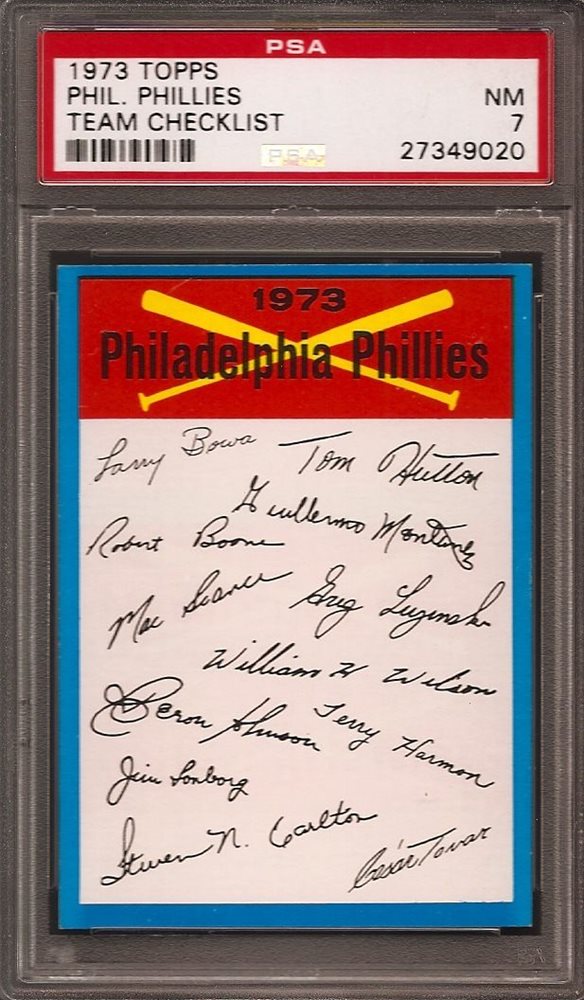 PSA
1973 TOPPS
PHIL. PHILLIES NM
TEAM CHECKLIST 7
PSA 27349020
1973
Philadelphia Phillies
Larry Bowa
Tom Hutton
Guillermo Montanez
Robert Boone
Mac Scarce
Greg Luzinski
William H Wilson
Deron Johnson
Terry Harmon
Jim Lonborg
Steven N. Carlton
César Tovar
PSA